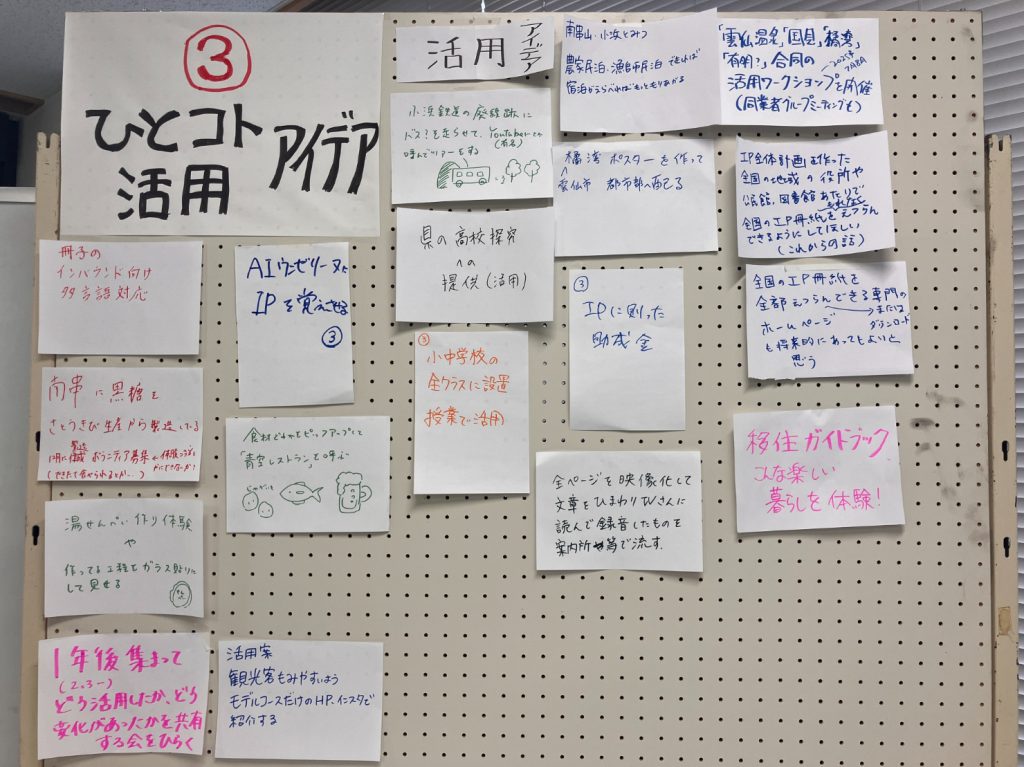 ③
ひとコト
活用
アイデア
活用
アイデア
南串山・小浜とみつ
農家民泊・漁師民泊 できれば
「雲仙温泉」「国見」「橘湾」
「有明?」合同の
活用ワークショップを開催
(同業者グループミーティングも)
小浜鉄道の廃線跡に
バス?を走らせて、Youtuberさん
(有名)
呼んでツアーをする
橘湾 ポスターを作って
雲仙市 都市部へ配る
IP全体計画を作った
全国の地域の役所や
公民館、図書館あたりで
全国のIP冊紙をえつらん
できるようにしてほしい
(これからの話)
県の高校探究
への
提供(活用)
冊子の
インバウンド向け
多言語対応
AIウェゼリーヌに
IPを覚えさせる
③
③
IPに則った
助成金
全国のIP冊紙を
全部えつらんできる専門の
または
ダウンロード
ホームページ
も将来的にあってもよいと
思う
③
小中学校の
全クラスに設置
授業で活用
南串に黒糖を
さとうきび生産から製造している
食材どれかをピックアップして
「青空レストラン」を呼ぶ
じゃがいも
移住ガイドブック
こんな楽しい
暮らしを体験!
全ページを映像化して
文章をひまわりTVさんに
読んで録音したものを
案内所等で流す.
湯せんぺい作り体験
や
作ってる工程をガラス貼りに
して見せる
1年後集まって
(2.3-)
どう活用したか、どう
変化があったかを共有
する会をひらく
活用案
観光客もみやすいよう
モデルコースだけのHP.インスタで
紹介する